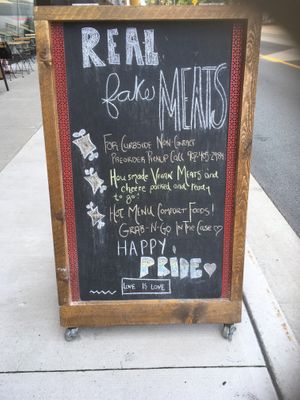 REAL
fake MEATS
FOR CURBSIDE NON-CONTACT
PREORDER PICKUP CALL
House made VEGAN MEATS and
cheese packed and ready
to go!
HOT MENU COMFORT FOODS!
GRAB-N-GO IN THE CASE
HAPPY
PRIDE
LOVE IS LOVE